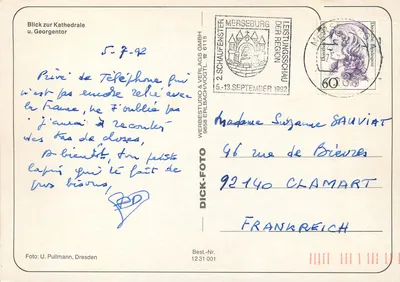 Blick zur Kathedrale
u. Georgentor
5-7-92
Privé de téléphone qui
n'est pas encore relié avec
la France, ne t'oublie pas
j'aurai à raconter
des tas de choses,
A bientôt, ton petit
lapin qui te fait de
gros bisous,
Foto: U. Pullmann, Dresden
WERBESTUDIO & VERLAGS GMBH
9658 ERLBACH/VOGTL. ☎ 6115
DICK-FOTO
Best.-Nr.
12 31 001
2. SCHAUFENSTER
MERSEBURG
LEISTUNGSSCHAU
DER REGION
5.-13. SEPTEMBER 1992
60
Madame Suzanne SAUVIAT
46 rue de Bièvres
92140 CLAMART
FRANKREICH